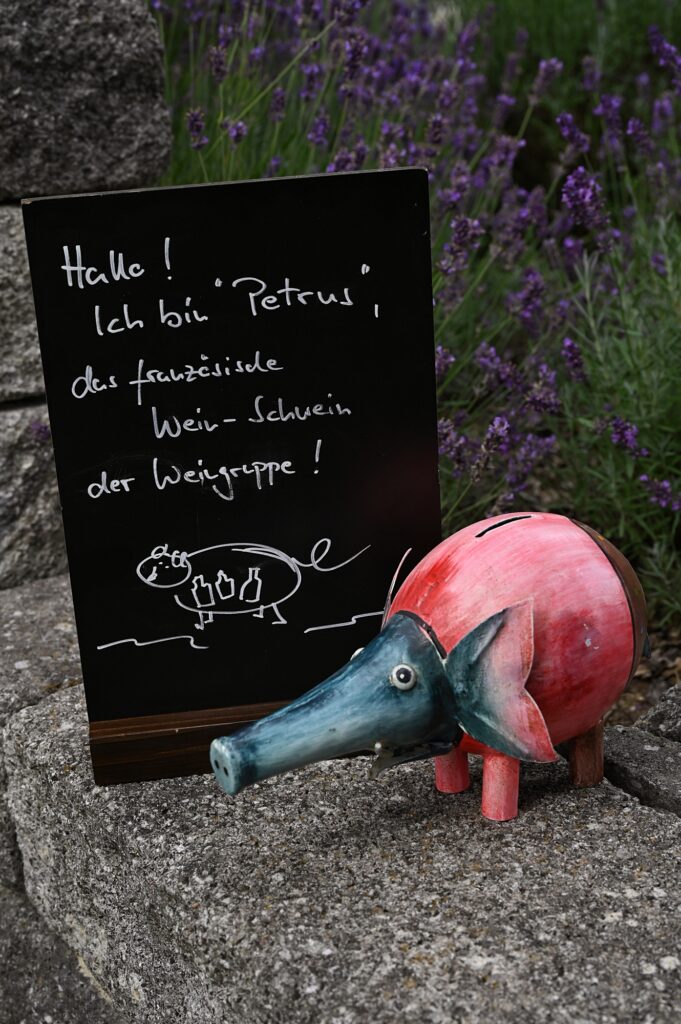 Hallo!
Ich bin "Petrus",
das französische
Wein-Schwein
der Weingruppe!